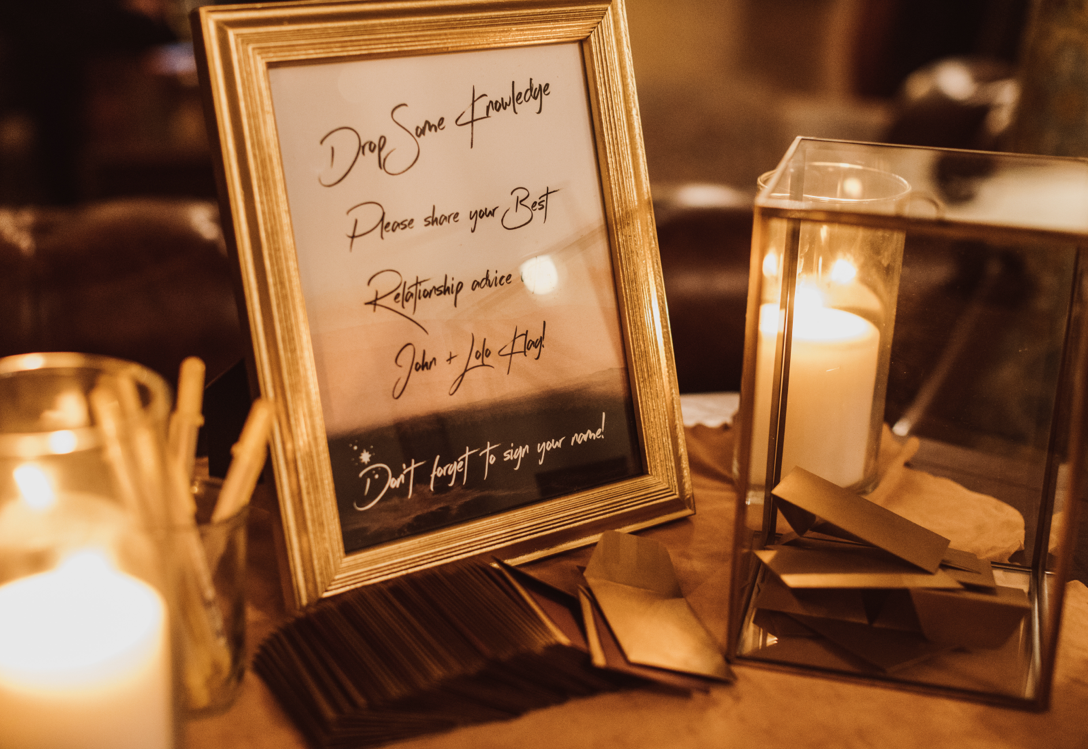 Drop Some Knowledge
Please share your Best
Relationship advice
John + Lolo Klag!
Don't forget to sign your name!